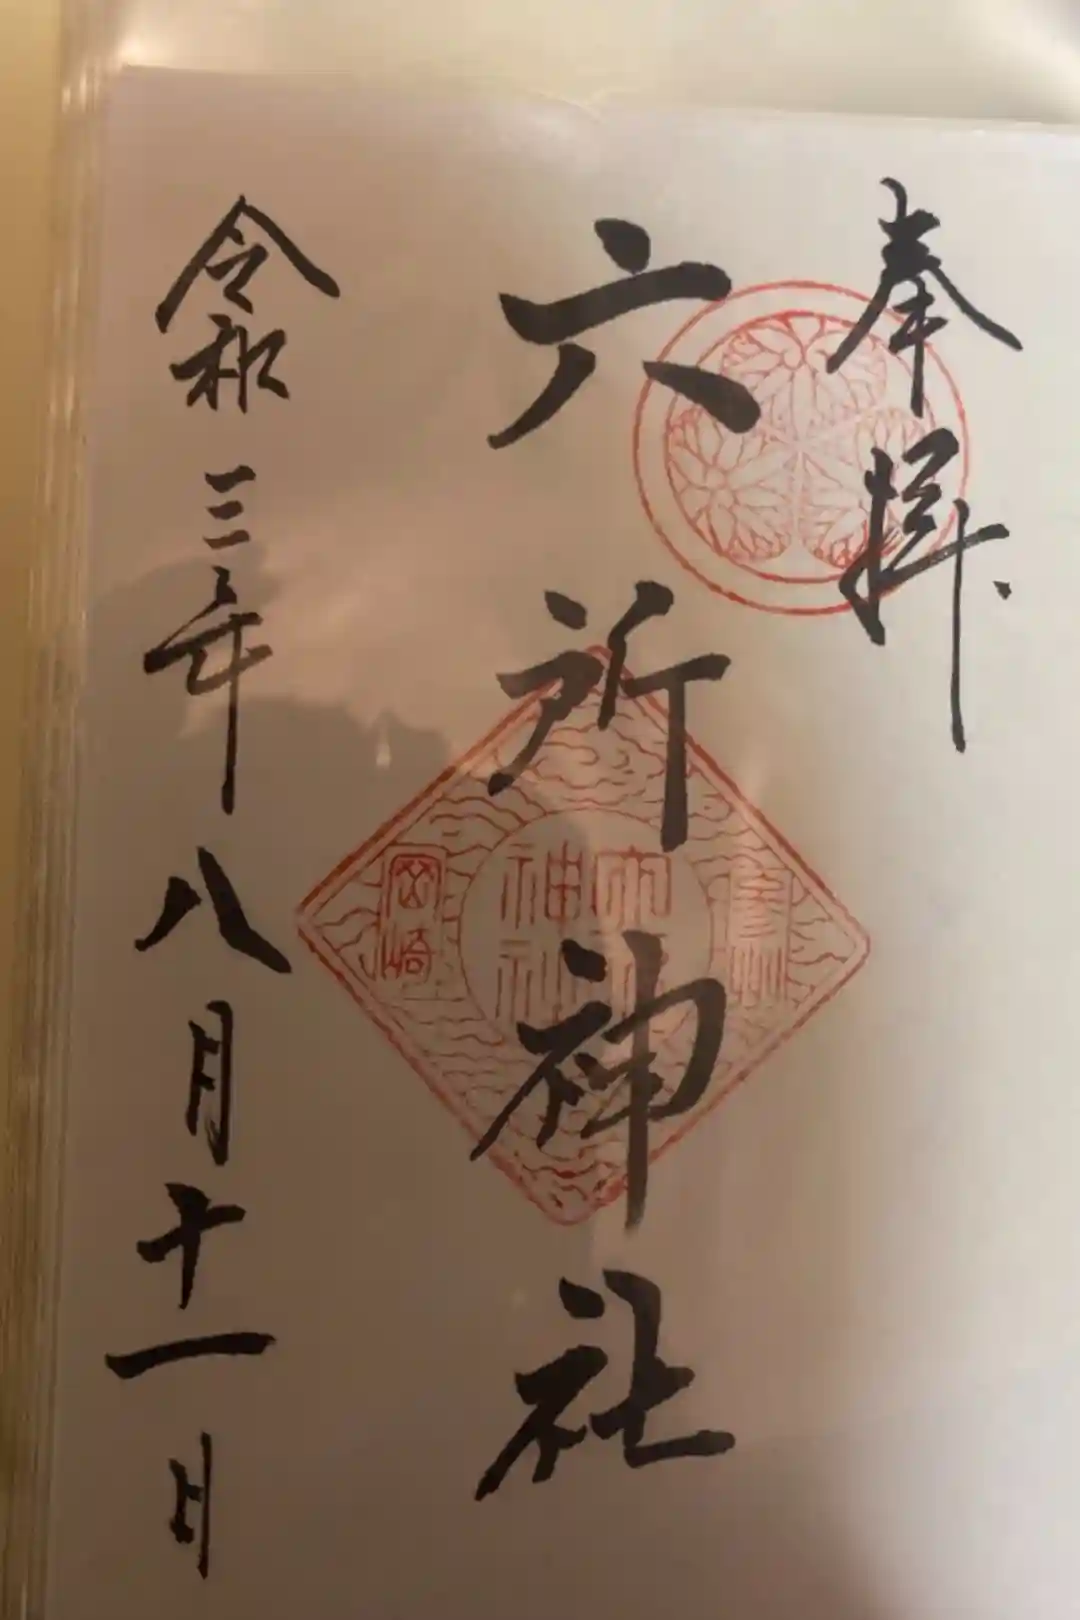 奉拝
六所神社
令和三年八月十一日
六所
神社
岡崎